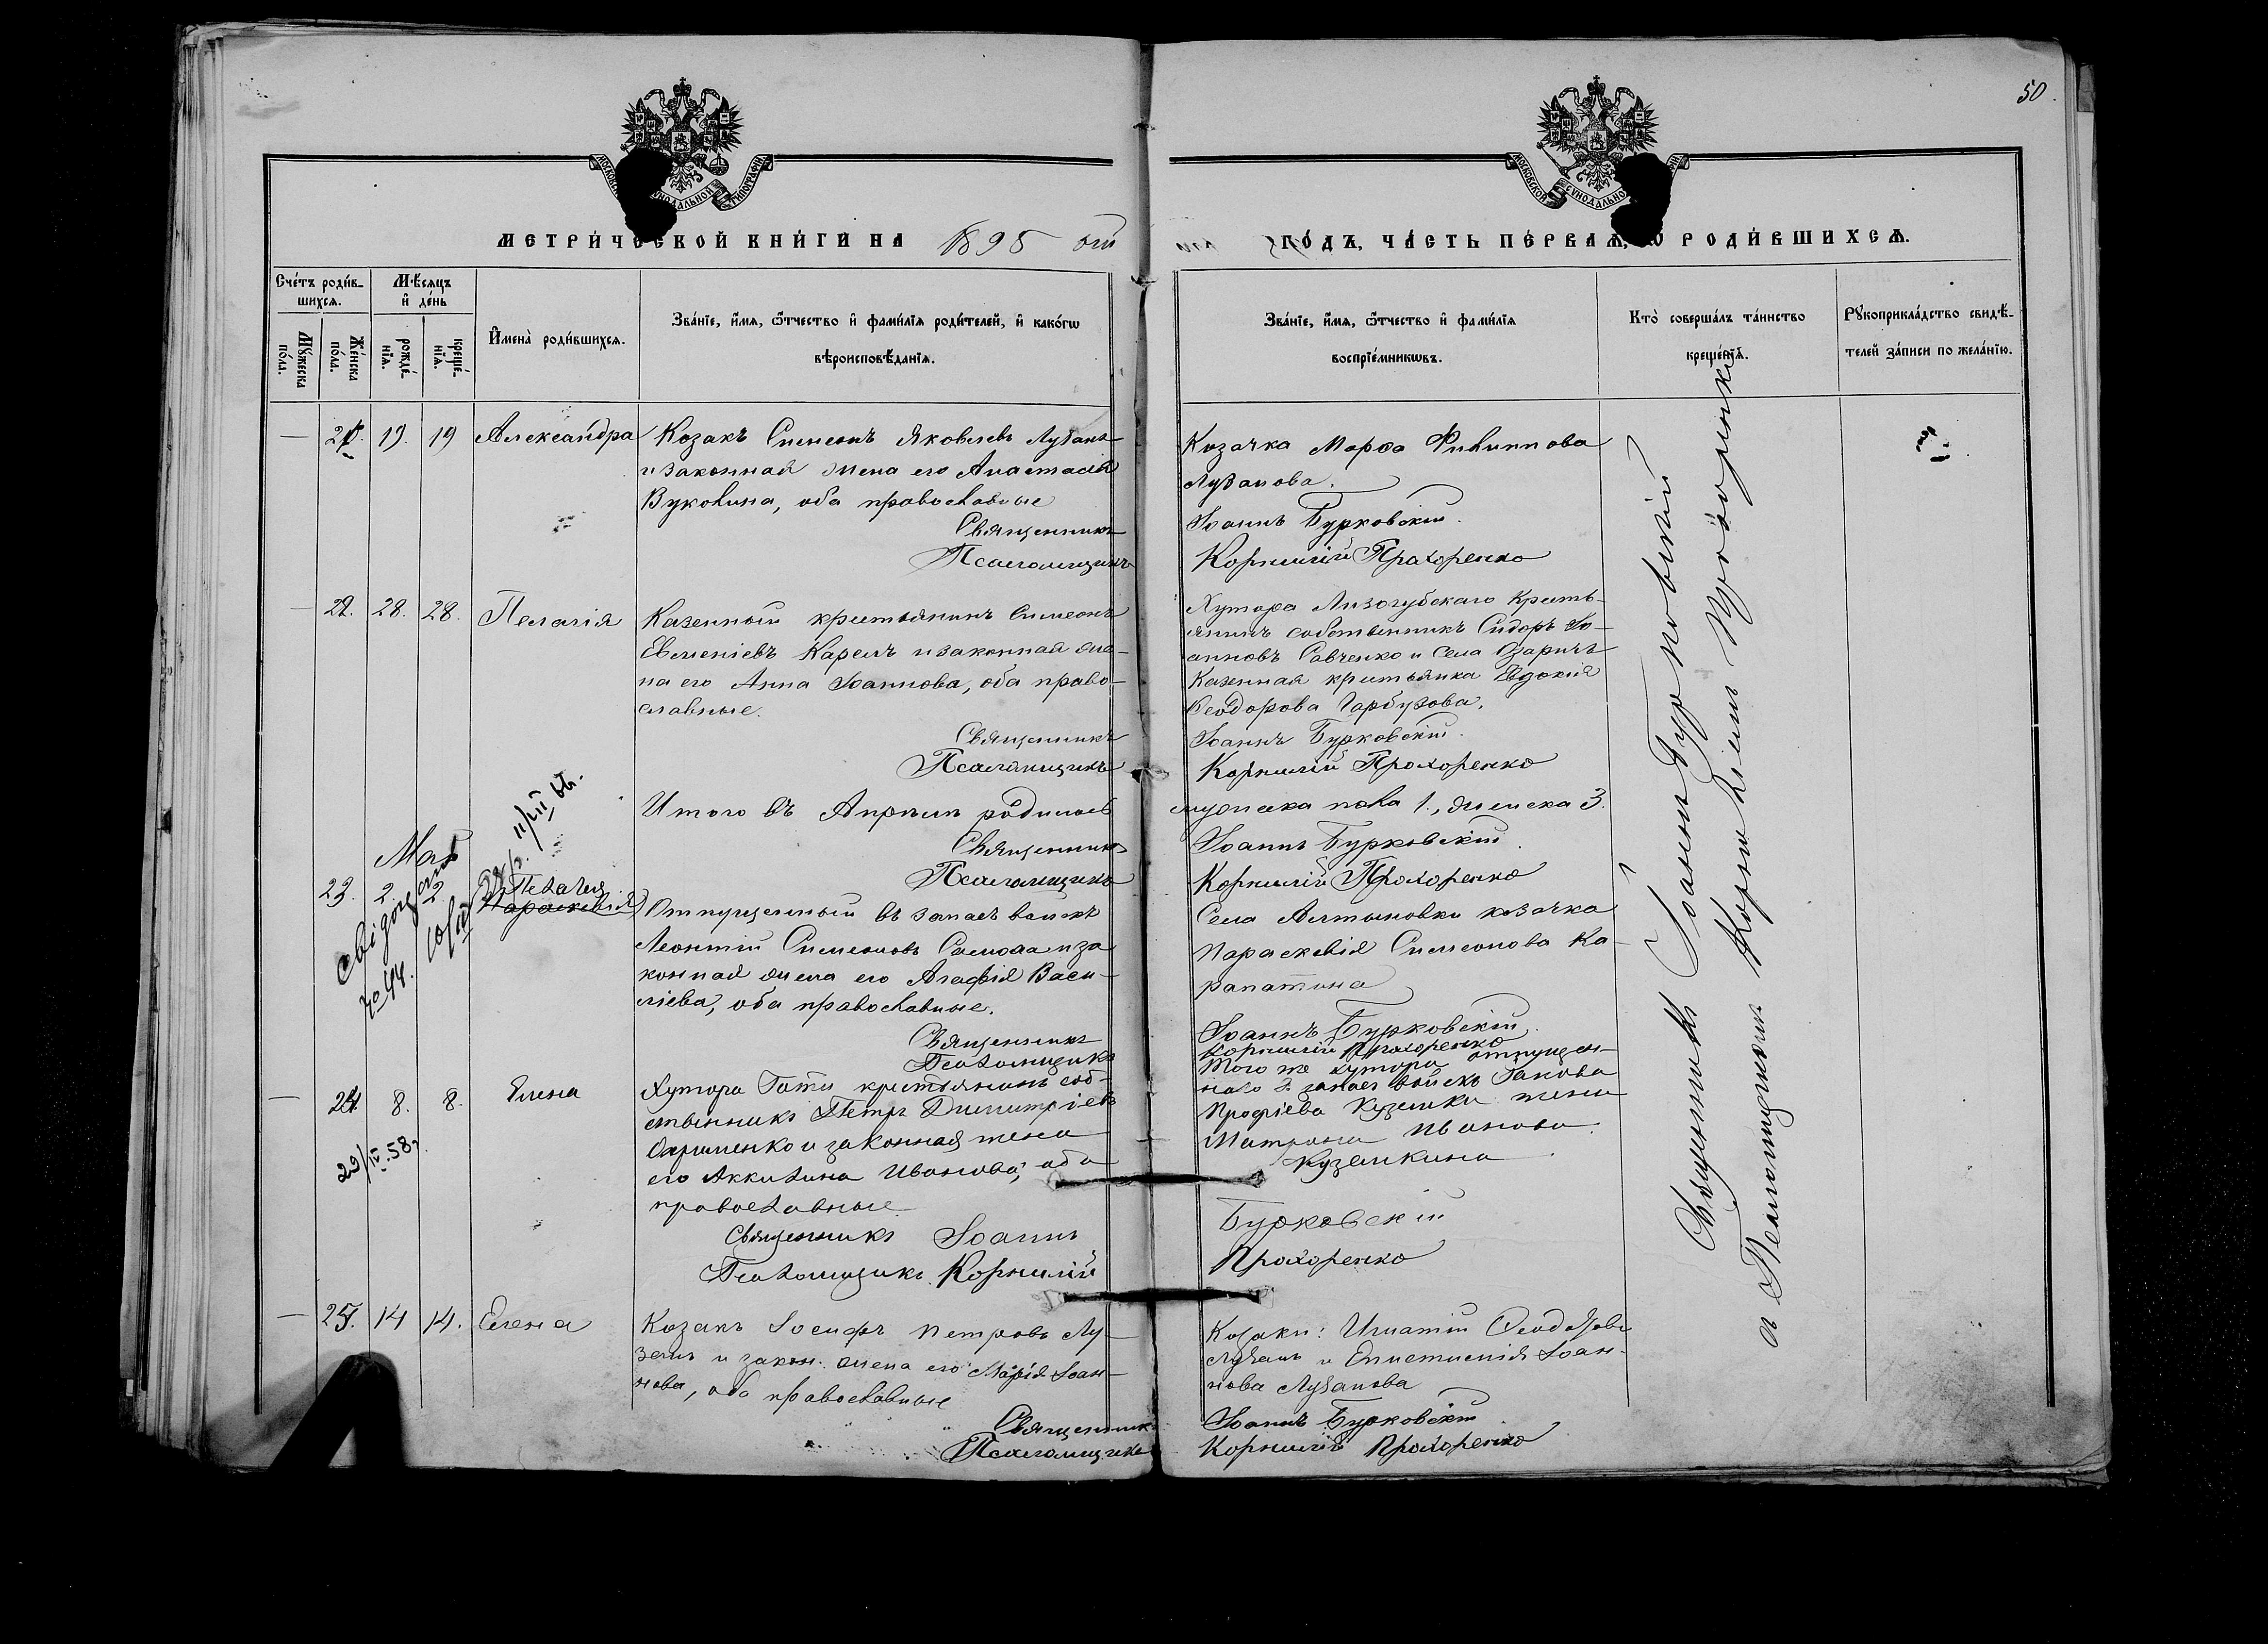 50.
МОСКОВСКОЙ СѴНОДАЛЬНОЙ ТИПОГРАФІИ
МЕТРИ́ЧЕСКОЙ КНИ́ГИ НА 1895 ой
ГО́ДЪ, ЧА́СТЬ ПЕ́РВАѦ, Ѡ РОДИ́ВШИХСѦ.
Сче́тъ роди́в-
шихсѧ.
Мѣ́сѧцъ
и҆ де́нь
Мꙋ́жеска
по́ла.
Же́нска
по́ла.
рожде́-
нїѧ.
креще́-
нїѧ.
И҆мена̀ роди́вшихсѧ.
Зва́нїе, и҆́мѧ, ѻ҆́тчество и҆ фами́лїѧ роди́телей, и҆ како́гѡ
вѣроисповѣ́данїѧ.
Зва́нїе, и҆́мѧ, ѻ҆́тчество и҆ фами́лїѧ
воспрїе́мникѡвъ.
Кто̀ соверша́лъ та́инство
креще́нїѧ.
Рꙋкоприкла́дство свидѣ́-
телей за́писи по жела́нїю.
— 21. 19. 19 Александра
Козакъ Симеонъ Яковлевъ Лузанъ
и законная жена его Анастасія
Вуколина, оба православные
Священникъ
Псаломщикъ
Козачка Марѳа Филиппова
Лузанова.
Іоаннъ Бурковскій.
Корнилій Прохоренко
— 22. 28. 28. Пелагія
Казенный крестьянинъ Симеонъ
Евменіевъ Карель и законная же-
на его Анна Іоаннова, оба право-
славные.
Священникъ
Псаломщикъ
Хутора Лизогубскаго кресть-
янинъ собственникъ Сидоръ Іо-
анновъ Савченко и села Озаричъ
казенная крестьянка Евдокія
Ѳеодорова Гарбузова.
Іоаннъ Бурковскій.
Корнилій Прохоренко
Итого въ Апрѣлѣ родилось
мужеска пола 1., женска 3.
Священникъ
Псаломщикъ
Іоаннъ Бурковскій.
Корнилій Прохоренко
Май
23. 2. 2. Пелагія
Параскевія
Отпущенный въ запасъ войскъ
Леонтій Симеоновъ и за-
конная жена его Агафія Васи-
ліева, оба православные.
Священникъ
Псаломщикъ
Села Алтыновки козачка
Параскевія Симеонова Ка-
рапатина
Іоаннъ Бурковскій.
Корнилій Прохоренко
— 24. 8. 8. Елена
29/IV.58.
Хутора Гати крестьянинъ соб-
ственникъ Петръ Димитріевъ
Охрименко и законная жена
его Аккилина Иванова, оба
православные
Священникъ Іоаннъ
Псаломщикъ Корнилій
Того же хутора отпущен-
наго въ запасъ войскъ Іакова
Профіева Куземки жена
Матрона Иванова
Куземкина
Бурковскій
Прохоренко
— 25. 14 14. Елена
Козакъ Іосифъ Петровъ Лу-
занъ и закон. жена его Марія Іоан-
нова, оба православные
Священникъ
Псаломщикъ
Козаки: Игнатій Ѳеодоровъ
Лузанъ и Епистимія Іоан-
нова Лузанова
Іоаннъ Бурковскій
Корнилій Прохоренко
Священникъ Іоаннъ Бурковскій
и Псаломщикъ Корнилій Прохоренко